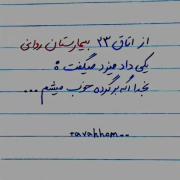 از اتاق ۲۳ بیمارستان روانی
یکی داد میزد میگفت :
بخدا اگه برگرده خوب میشم ...
ravahhom..